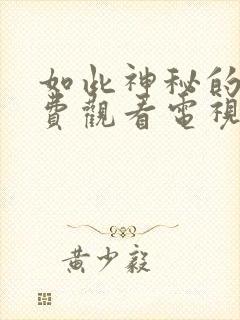 如此神秘的
費觀看電視
黃少毅